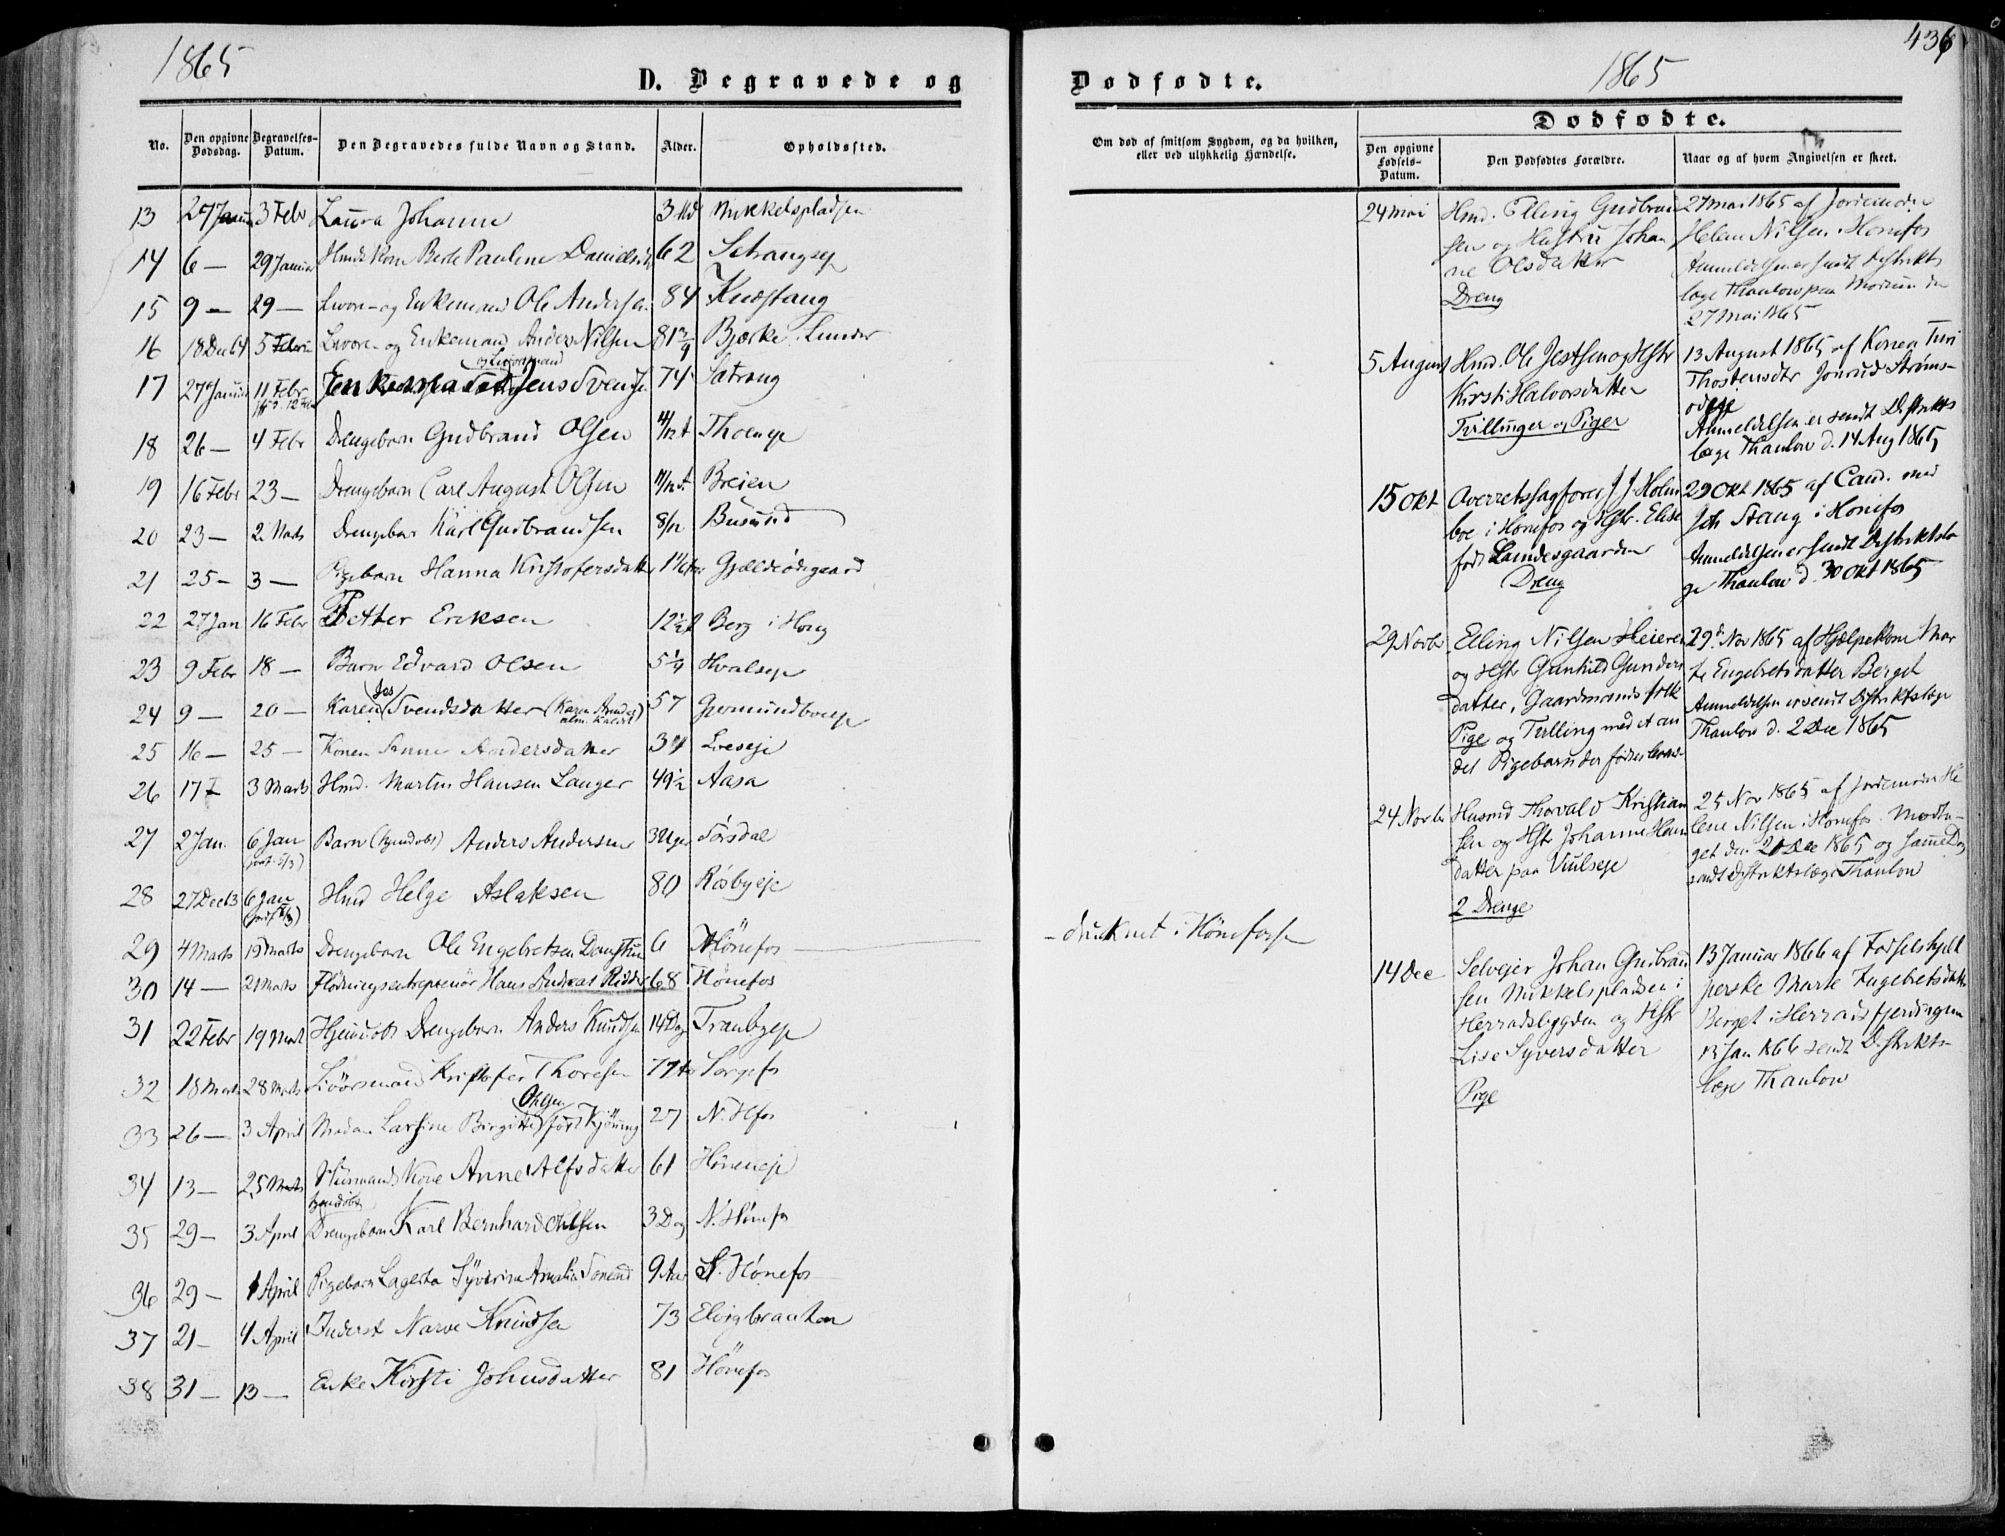 1865
D. Begravede og
No. Den opgivne Dødsdag. Begravelses-Datum. Den Begravedes fulde Navn og Stand. Alder. Opholdssted.
13 27 3 Febr Laura Johanne 3 Md Mikkelspladsen
14 6 — 29 Januar Kone Berte Pauline 62
15 9 — 29 — og Enkemand Ole Andersen 84 Knestang
16 18 Dec 64 5 og Enkemand Anders Nilsen 81 Bjerke Lunder
17 27 Januar 11 Febr Enkemand Jens Svends. 74 Setrang
18 26 — 4 Febr Drengebarn Gudbrand Olsen Thoenye
19 16 Febr 23 — Drengebarn Carl August Olsen 11/12 A. Breien
20 23 — 2 Marts Drengebar Karl Gudbrandsen 8/12 Busund
21 25 — 3 — Pigebarn Hanna Kristofersdatter Gjeldeødegaard
22 27 Jan 16 Febr Petter Eriksen 12½ Berg i Houg
23 9 Febr 18 — Barn Edvard Olsen 5¼ Hvalseje
24 9 — 20 — Karen Svendsdatter (Karen 57 Gusmundboeje
25 16 — 25 — Konen Anne Andersdatter 34
26 17 3 Marts Hmd. Martin Hansen Langer 49½ Aasa
27 2 Jan. 6 Jan Barn (hjemdøbt) Anders Andersen 3 Uger Sørsdal
28 27 Dec 6 Jan Hmd Helge Aslaksen 80 Røsbyeje
29 4 Marts 19 Marts Drengebarn Ole Engebretsen 6 Hønefos
30 14 — 21 Marts Flødningsentreprenør Hans Andreas 68 Hønefos
31 22 Febr 19 Marts Hjemdøbt Drengebarn Anders Knudsen 14 Dag Tranbyeje
32 18 Marts 28 Marts Kristofer Thoresen 77
Ohlsen
33 26 — 3 April Madam Larsine Birgitte født 27 N. Hfos
34 13 — 25 Marts Husmands Kone Anne Alfsdatter 61 Høneneje
hjemdøbt
35 29 — 3 April Drengebarn Karl Bernhard Ohlsen 3 Dag N. Hønefos
36 29 — 1 April Pigebarn Lagerta Syverine Amalia 9 Aar S. Hønefos
37 21 — 4 April Inderst Narve Knudsen 73
38 31 — 13 — Enke Kirsti Johnsdatter 81 Hønefos
436
1865
Dødfødte.
Om død af smitsom Sygdom, og da hvilken,
eller ved ulykkelig Hændelse.
Dødfødte.
Den opgivne Fødsels-Datum. Den Dødfødtes Forældre. Naar og af hvem Angivelsen er skeet.
— druknet i Hønefossen
24 Mai Hmd. Elling Gudbrand
sen og Hustru Johan
ne Olsdatter
Dreng
27 Mai 1865 af Jordemoder
Helene Nilsen Hønefos
Anmeldelsen er sendt Distrikts
læge Thaulow paa Modum den
27 Mai 1865
5 August Hmd. Ole og Hstr
Kirsti Halvorsdatter
Tvillinger og Piger
13 August 1865 af Konen Turi
Thostensdtr Strøms-
Anmeldelsen er sendt Distrikts
læge Thaulow d. 14 Aug 1865
15 Okt Overretssagfører J J Holm
boe i Hønefos og Hstr. Elise
født Landesgaarden
Dreng
29 Okt 1865 af Cand. med
Stang i Hønefos
Anmeldelsen er sendt Distriktslæ
ge Thaulow d. 30 Okt 1865
29 Novbr Elling Nilsen Heieren
og Hstr Gunhild Gunders
datter, Gaardmandsfolk
Pige og Tvilling med et an
det Pigebarn der fødtes
29d Nov 1865 af Hjælpekone Mar
te Engebretsdatter Berget
Anmeldelsen er sendt Distriktslæge
Thaulow d. 2 Dec 1865
24 Novbr Husmd Thorvald Kristian
sen og Hstr Johanne Hans
datter paa
2 Drenge
25 Nov 1865 af Jordemoder He
lene Nilsen i Hønefos. Modta-
get den Dec 1865 og samme Dag
sendt Distriktslæge Thaulow
14 Dec Selveier Johan Gudbrand
sen Mikkelspladsen i
Herradsbygden og Hstr
Lise Syversdatter
Pige
13 Januar 1866 af Fødselshjæl
perske Marte Engebretsdatter
Berget i Herradsfjerdingen
13 Jan 1866 sendt Distrikts-
læge Thaulow